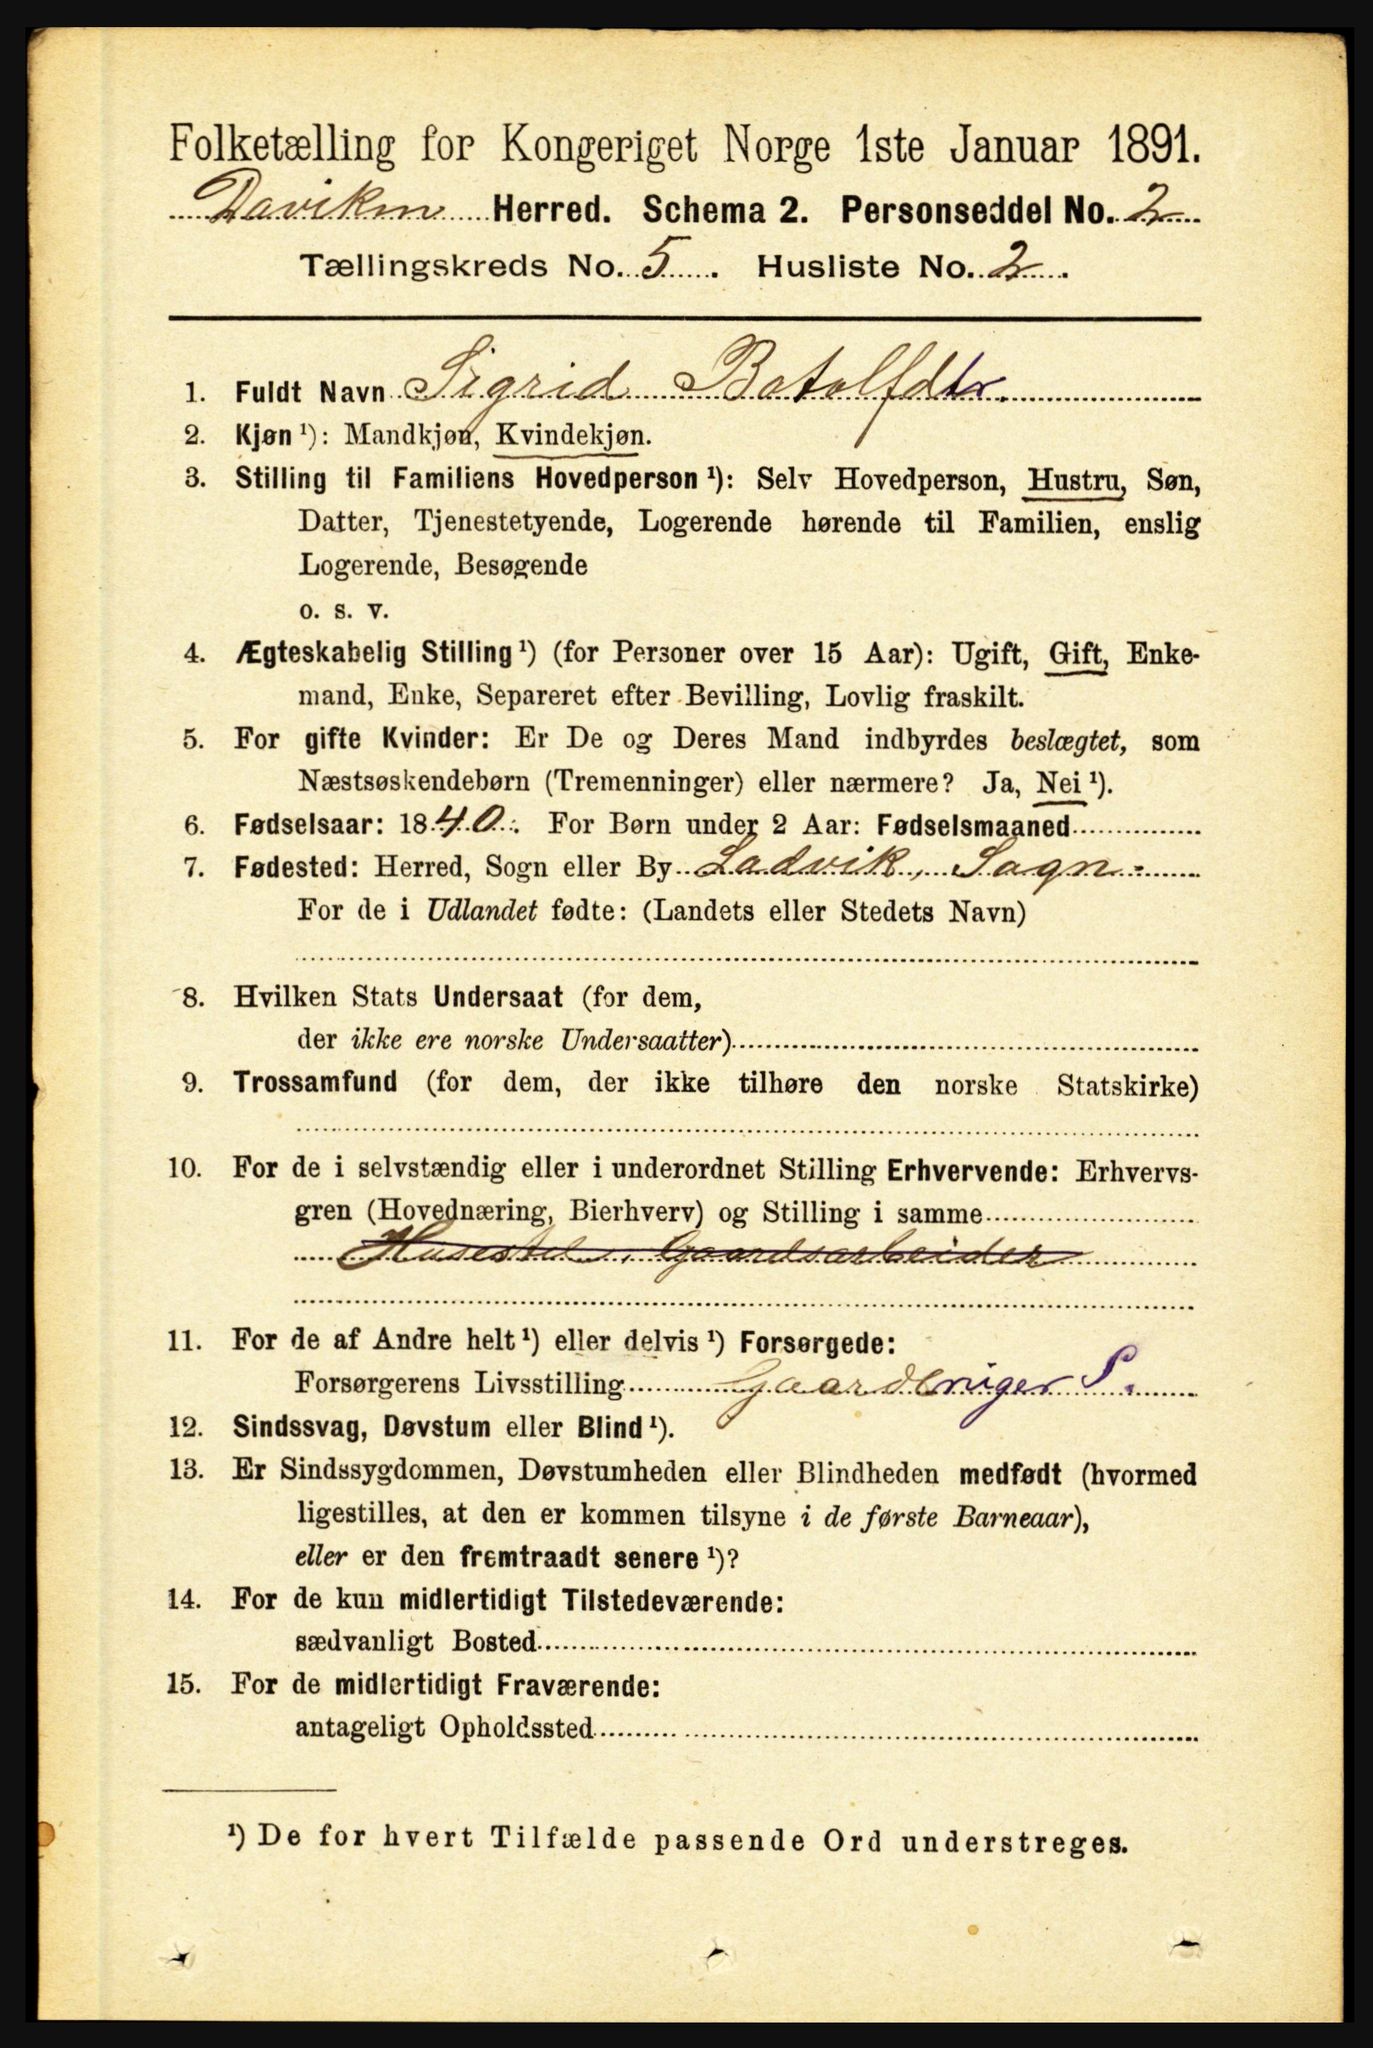 Folketælling for Kongeriget Norge 1ste Januar 1891.
Daviken Herred. Schema 2. Personseddel No. 2
Tællingskreds No. 5. Husliste No. 2.
1. Fuldt Navn Sigrid Botolfdtr.
2. Kjøn ¹): Mandkjøn, Kvindekjøn.
3. Stilling til Familiens Hovedperson ¹): Selv Hovedperson, Hustru, Søn,
Datter, Tjenestetyende, Logerende hørende til Familien, enslig
Logerende, Besøgende
o. s. v.
4. Ægteskabelig Stilling ¹) (for Personer over 15 Aar): Ugift, Gift, Enke-
mand, Enke, Separeret efter Bevilling, Lovlig fraskilt.
5. For gifte Kvinder: Er De og Deres Mand indbyrdes beslægtet, som
Næstsøskendebørn (Tremenninger) eller nærmere? Ja, Nei ¹).
6. Fødselsaar: 1840. For Børn under 2 Aar: Fødselsmaaned
7. Fødested: Herred, Sogn eller By Ladvik, Sogn.
For de i Udlandet fødte: (Landets eller Stedets Navn)
8. Hvilken Stats Undersaat (for dem,
der ikke ere norske Undersaatter)
9. Trossamfund (for dem, der ikke tilhøre den norske Statskirke)
10. For de i selvstændig eller i underordnet Stilling Erhvervende: Erhvervs-
gren (Hovednæring, Bierhverv) og Stilling i samme
Husestel, Gaardsarbeider
11. For de af Andre helt ¹) eller delvis ¹) Forsørgede:
Forsørgerens Livsstilling Gaardbruger S.
12. Sindssvag, Døvstum eller Blind ¹).
13. Er Sindssygdommen, Døvstumheden eller Blindheden medfødt (hvormed
ligestilles, at den er kommen tilsyne i de første Barneaar),
eller er den fremtraadt senere ¹)?
14. For de kun midlertidigt Tilstedeværende:
sædvanligt Bosted
15. For de midlertidigt Fraværende:
antageligt Opholdssted
¹) De for hvert Tilfælde passende Ord understreges.